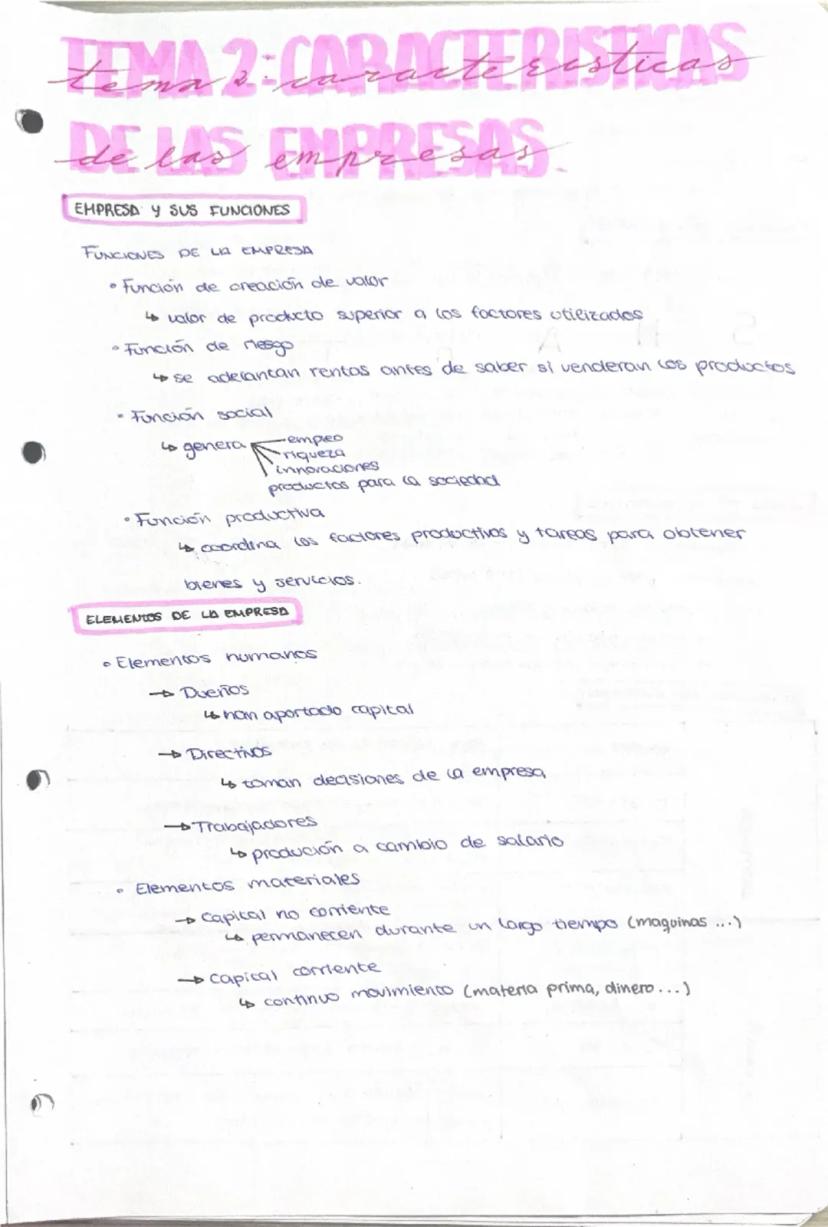 TEMA 2: CARACTERISTICAS
tema 2: caracteristicas
DE LAS EMPRESAS
de las empresas.
EMPRESA Y SUS FUNCIONES
FUNCIONES DE LA EMPRESA
• Función de creación de valor
↳ valor de producto superior a los factores utilizados
• Función de riesgo
↳ se adelantan rentas antes de saber si venderan los productos
• Función social
↳ genera empleo
riqueza
innovaciones
productos para la sociedad
• Función productiva
↳ coordina los factores productivos y tareas para obtener
bienes y servicios.
ELEMENTOS DE LA EMPRESA
• Elementos humanos
→ Dueños
↳ han aportado capital
→ Directivos
↳ toman decisiones de la empresa
→ Trabajadores
↳ produción a cambio de salario
• Elementos materiales
→ Capital no corriente
↳ permanecen durante un largo tiempo (maquinas ...)
→ Capital corriente
↳ continuo movimiento (materia prima, dinero...)